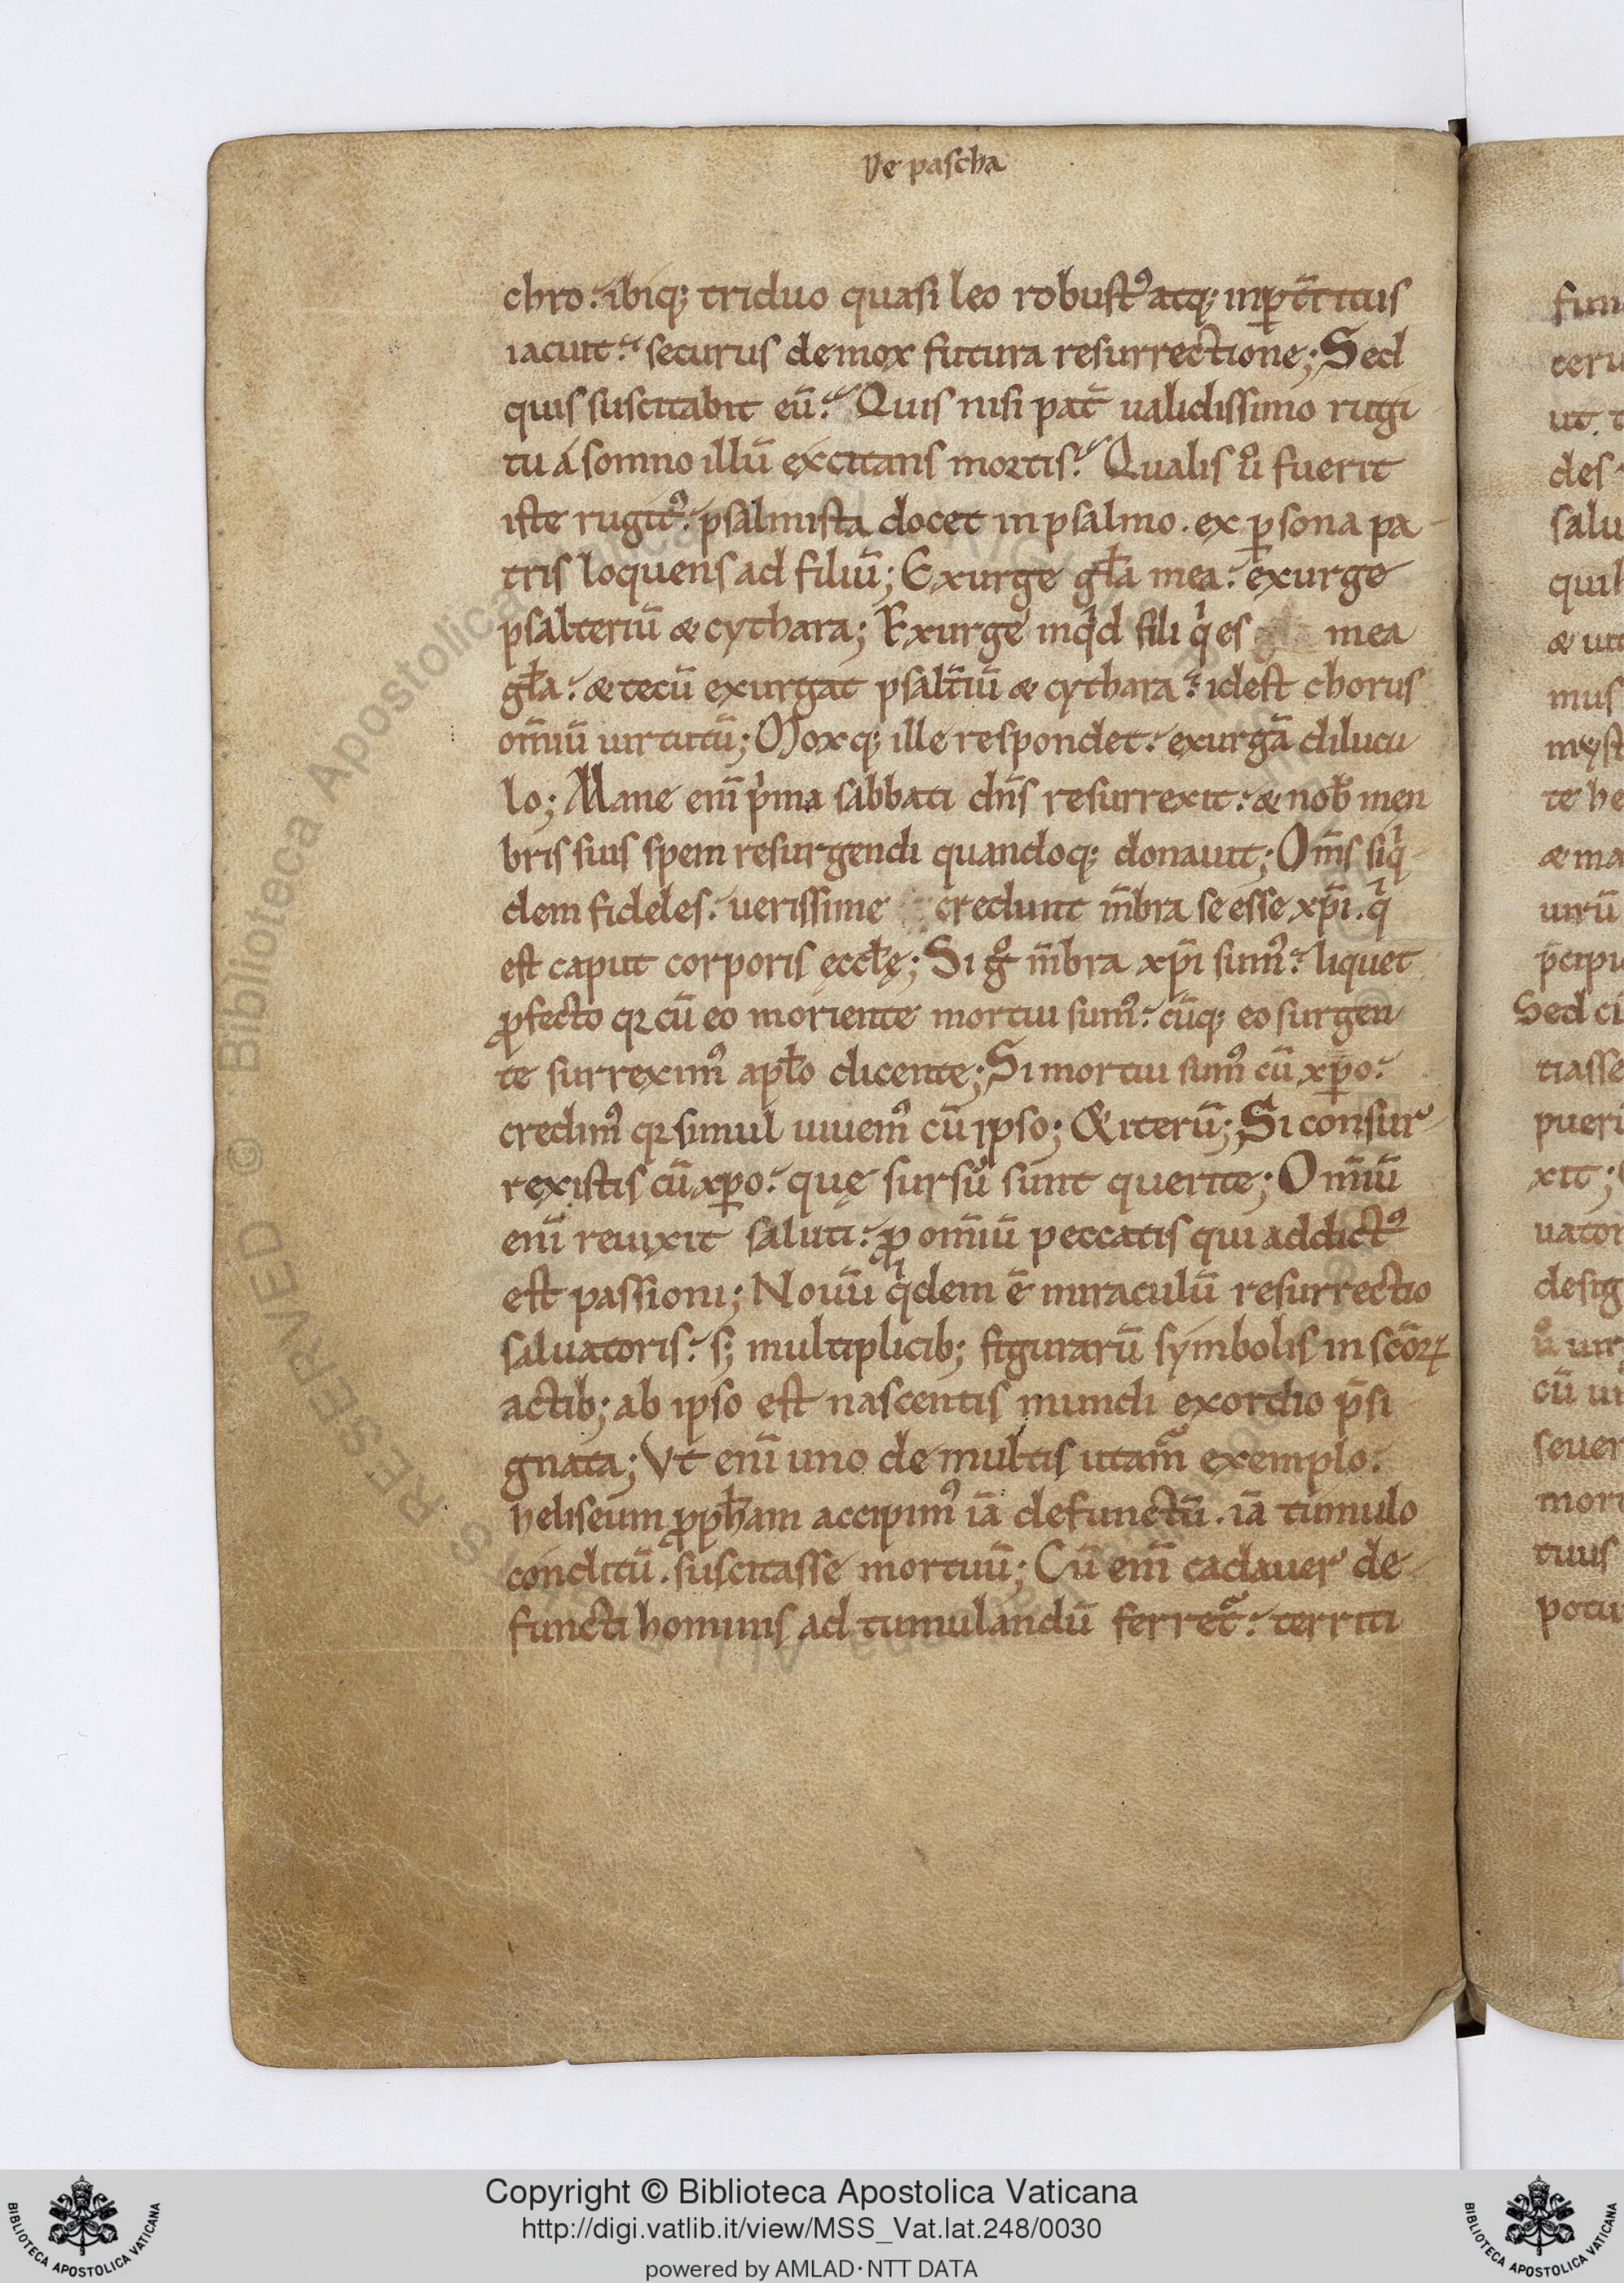 De pascha
chro. ibiq; triduo quasi leo robustꝰ atq; inꝑt̄ritus
iacuit. securus de mox futura resurrectione; Sed
quis suscitabit eū. Quis nisi pat̄ ualidissimo rugi
tu a somno illū excitans mortis. Qualis ů fuerit
iste rugitꝰ. psalmista docet in psalmo. ex ꝑsona pa-
tris loquens ad filiū; Exurge gl̄a mea. exurge
psalteriū & cythara; Exurge inqͥd fili qͥ es mea
gl̄a. & tecū exurgat psalt̄iū & cythara. idest chorus
om̄iū uirtutū; Moxq; ille respondet. exurgā dilucu
lo; Mane eni̅ pͥma sabbati dn̄s resurrexit. & nob̄ men
bris suis spem resurgendi quandoq; donauit; Om̄s siqͥ
dem fideles. uerissime credunt m̄bra se esse xp̄i. qͥ
est caput corporis ęccl̄ę; Si gͦ m̄bra xp̄i sumꝰ. liquet
ꝓfecto qꝛ cū eo moriente mortui sumꝰ. cūq; eo surgen
te surreximꝰ apl̄o dicente; Si mortui sumꝰ cū xp̄o.
credimꝰ qꝛ simul uiuemꝰ cū ipso; & iterū; Si consur-
rexistis cū xp̄o. quę sursū sunt querite; Om̄iū
eni̅ reuixit saluti. ꝓ om̄iū peccatis qui addictꝰ
est passioni; Nouū qͥdem ē miraculū resurrectio
saluatoris. s; multiplicib; figurarū symbolis in sc̄oꝝ
actib; ab ipso est nascentis mundi exordio p̄si
gnata; Vt eni̅ uno de multis utam̄ exemplo.
heliseum ꝓph̄am accipimꝰ iā defunctū. iā tumulo
conditū. suscitasse mortuū; Cū eni̅ cadauer de
functi hominis ad tumulandū ferret̄. territi
fun
ceru
ut. t
des
salu
quil
& uti
mus
myst
te he
& ma
uirū
p̄cipi
Sed ci
tiasse
pueri
xit;
uator
desig
ů uir
cū ui
seuer
mort
tuus
potui
© Biblioteca Apostolica Vaticana
RESERVED
Copyright © Biblioteca Apostolica Vaticana
http://digi.vatlib.it/view/MSS_Vat.lat.248/0030
powered by AMLAD·NTT DATA
BIBLIOTECA APOSTOLICA VATICANA
BIBLIOTECA APOSTOLICA VATICANA